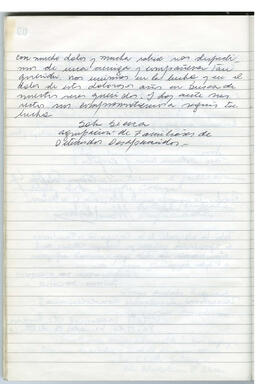 con mucho dolor y mucha rabia nos despedi-
mos de una amiga y compañera tan
querida. nos unimos en la lucha y en el
dolor de estos dolorosos años en busca de
nuestros seres queridos. Y hoy ante sus
restos nos comprometemos a seguir tu
lucha.
Sola Sierra
agrupacion de Familiares de
Detenidos Desaparecidos.-